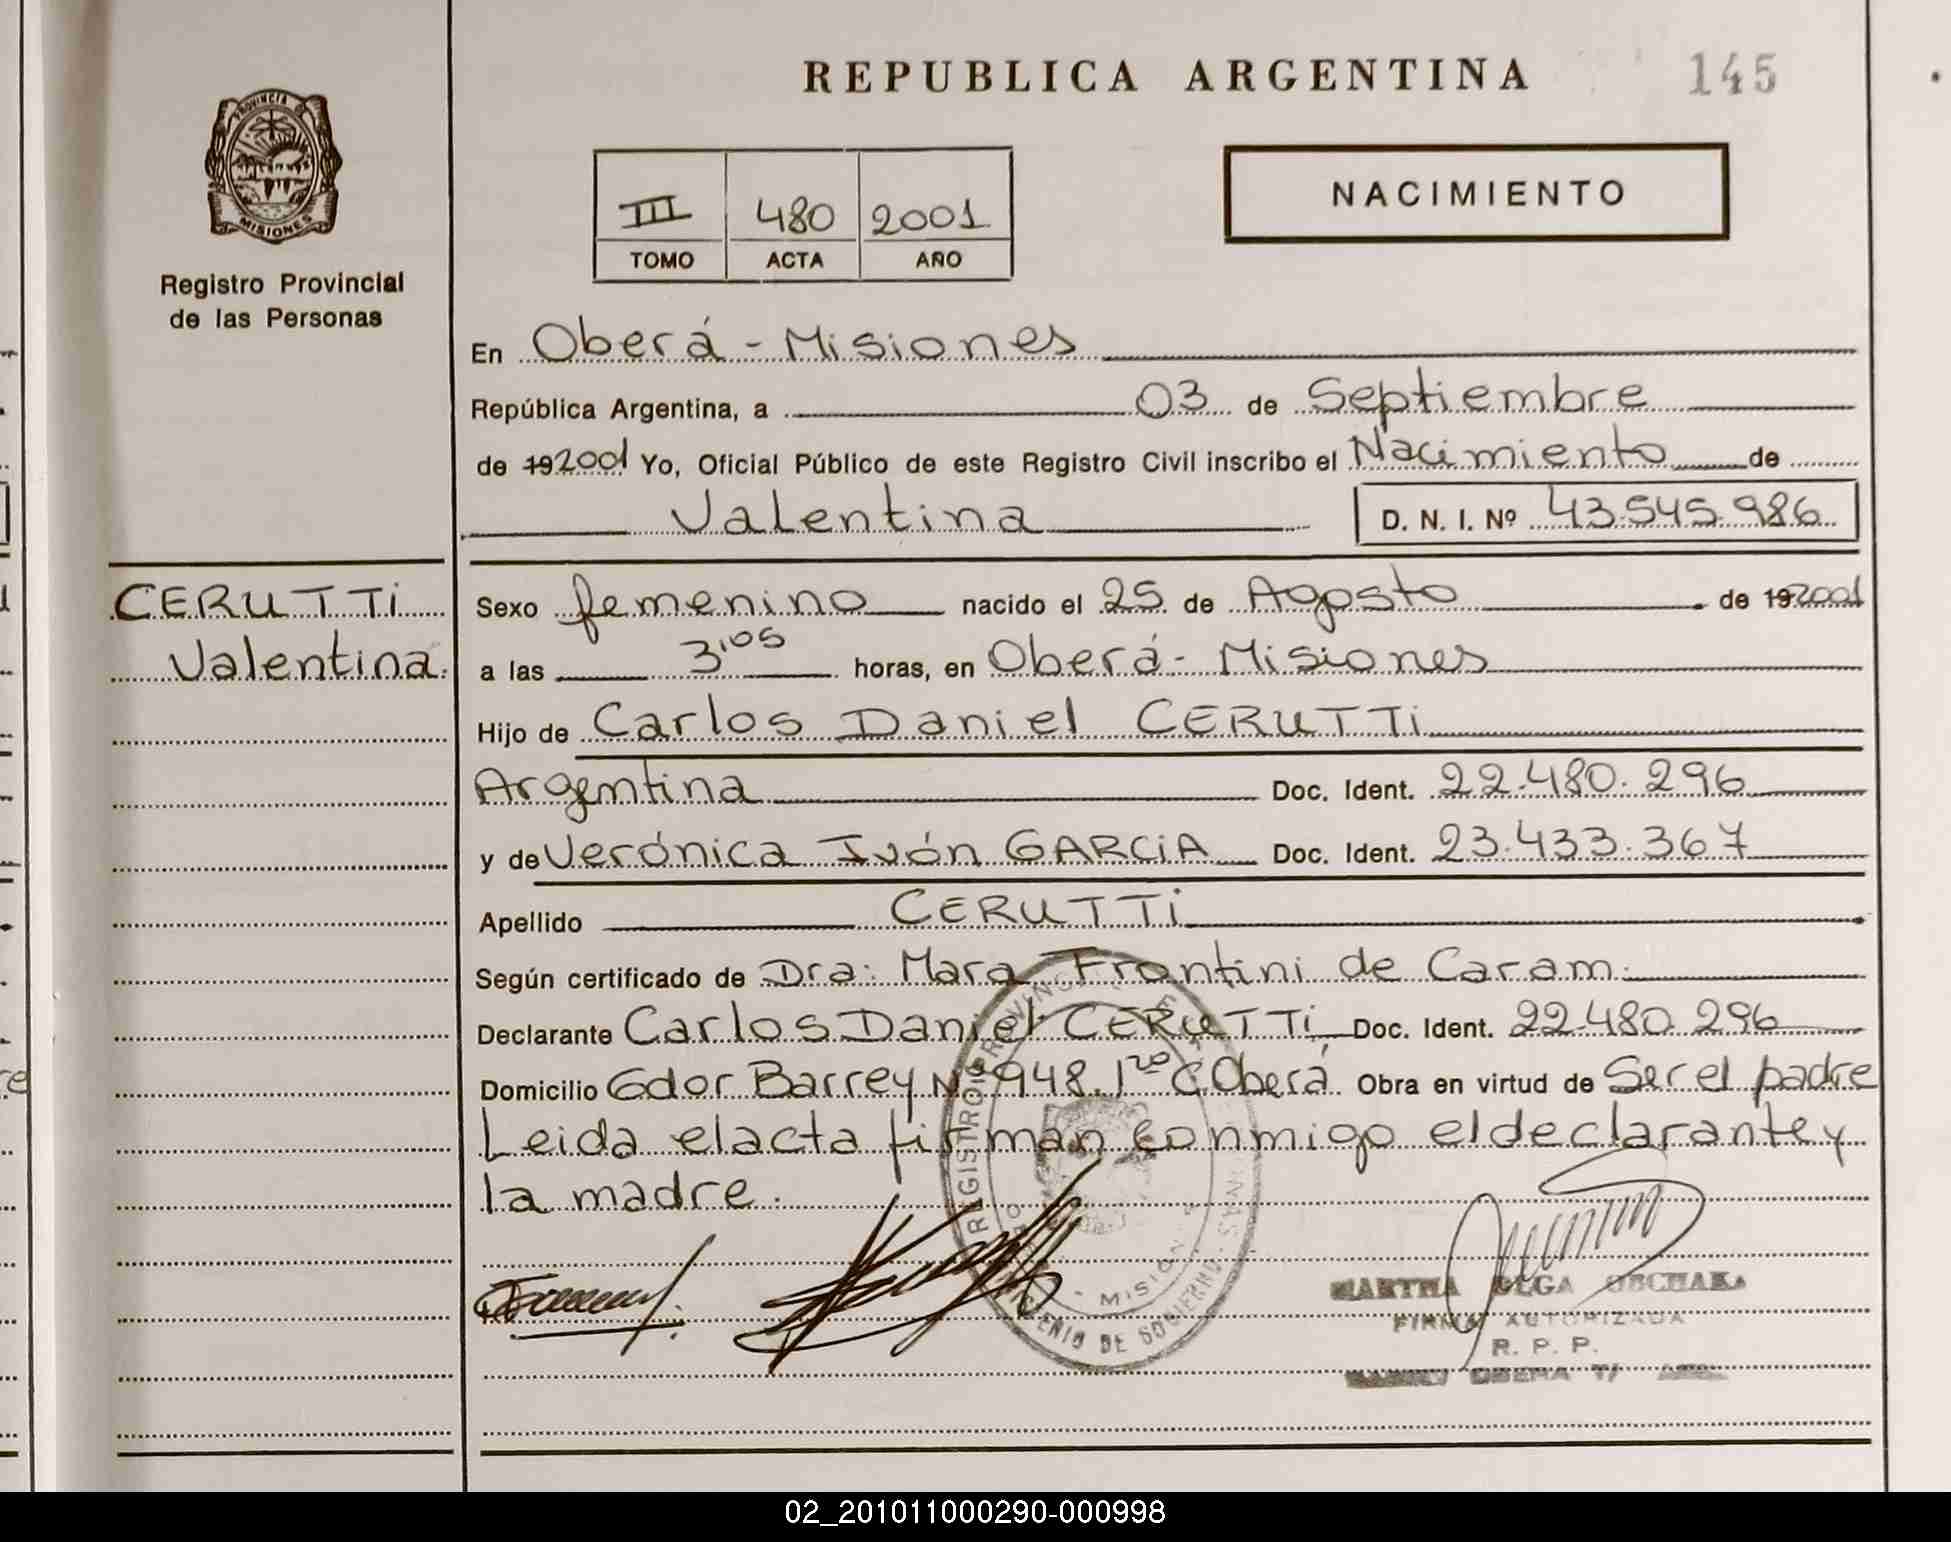 REPUBLICA ARGENTINA
145
PROVINCIA DE
MISIONES
Registro Provincial
de las Personas
III 480 2001
TOMO ACTA AÑO
NACIMIENTO
En Oberá - Misiones
República Argentina, a 03 de Septiembre
de 192001 Yo, Oficial Público de este Registro Civil inscribo el Nacimiento de
Valentina D. N. I. Nº 43.545.986
CERUTTi
Valentina.
Sexo femenino nacido el 25 de Agosto de 192001
a las 3,05 horas, en Oberá - Misiones
Hijo de Carlos Daniel CERUTTi
Argentina Doc. Ident. 22.480.296
y de Verónica Ivón GARCiA Doc. Ident. 23.433.367
Apellido CERUTTi
Según certificado de Dra: Mara Frontini de Caram.
Declarante Carlos Daniel CERUTTi Doc. Ident. 22.480.296
Domicilio Gdor Barrey Nº 948. Oberá Obra en virtud de Ser el padre
Leida el acta firman conmigo el declarante y
la madre.
REGISTRO PROVINC
MISION
DE GOBIERNO
MARTHA OLGA
FIRMA AUTORIZADA
R. P. P.
OBERA
02_201011000290-000998